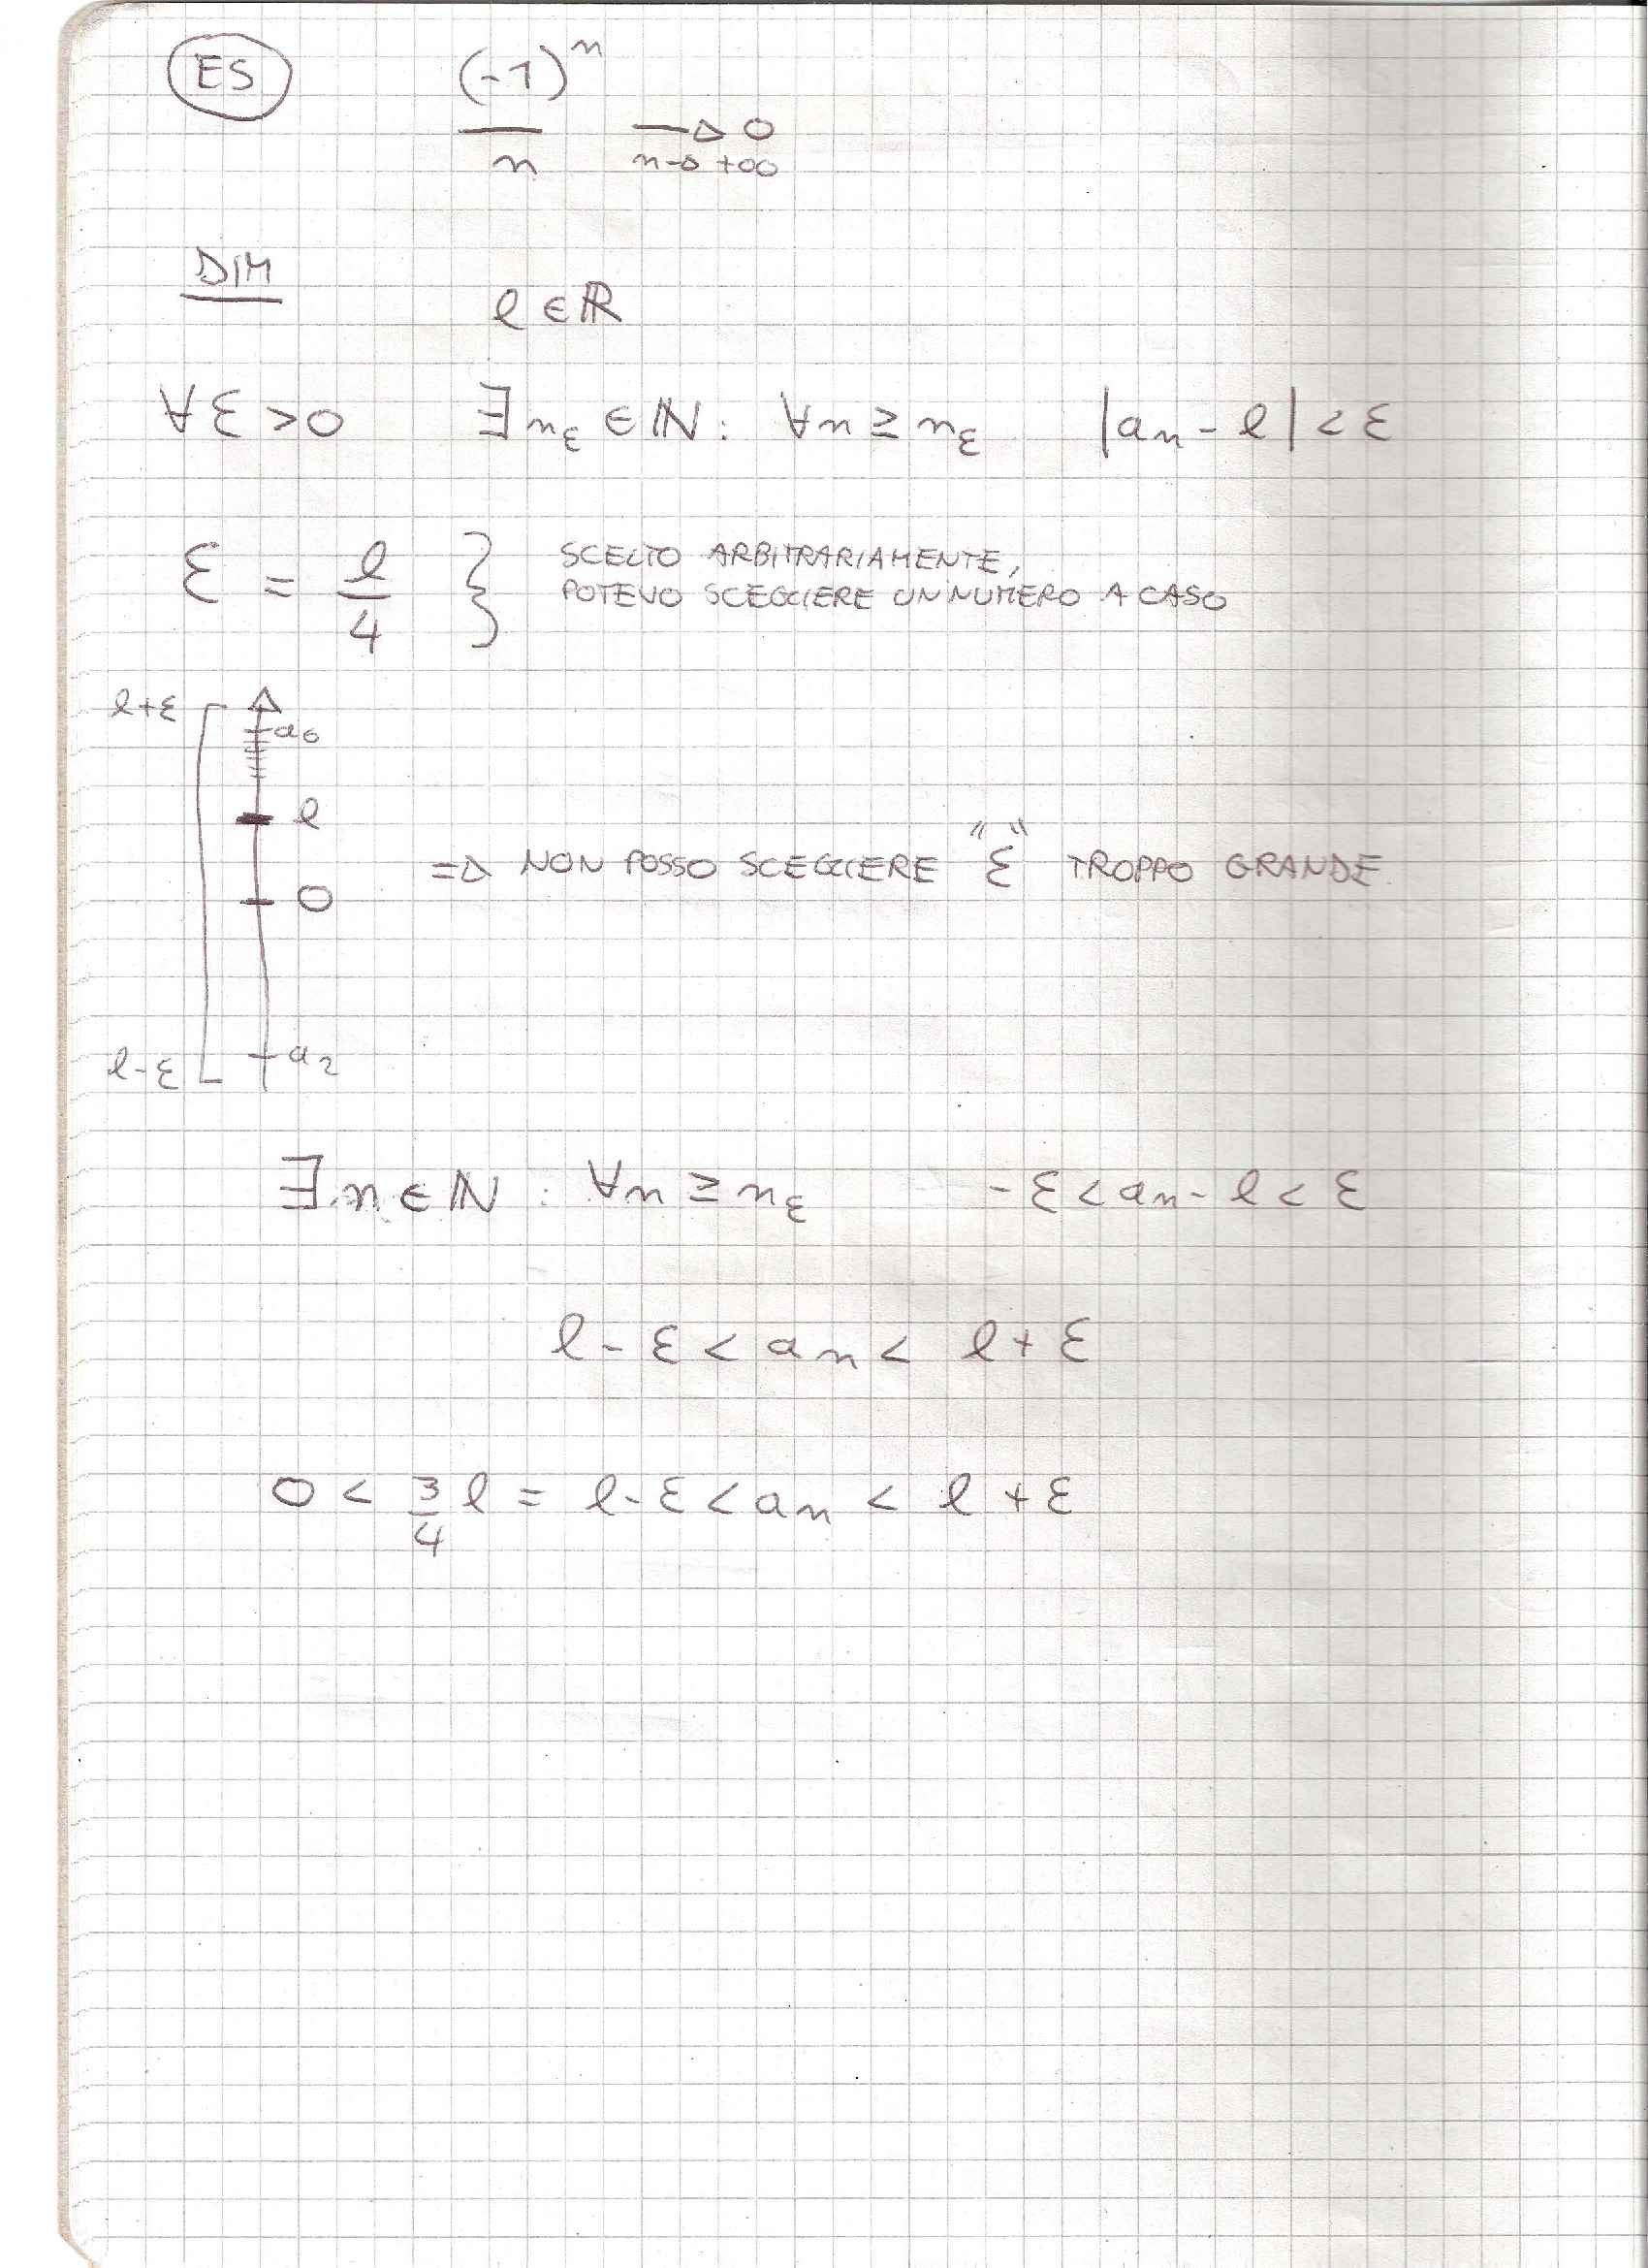 ES (-1)^n / n → 0
n → +∞
DIM
l ∈ ℝ
∀ε > 0 ∃ n_ε ∈ ℕ : ∀n ≥ n_ε |a_n - l| < ε
ε = l/4 } SCELTO ARBITRARIAMENTE,
POTEVO SCEGLIERE UN NUMERO A CASO
l+ε
a_0
l
⇒ NON POSSO SCEGLIERE "ε" TROPPO GRANDE
0
l-ε a_2
∃ n ∈ ℕ : ∀n ≥ n_ε -ε < a_n - l < ε
l - ε < a_n < l + ε
0 < 3/4 l = l - ε < a_n < l + ε